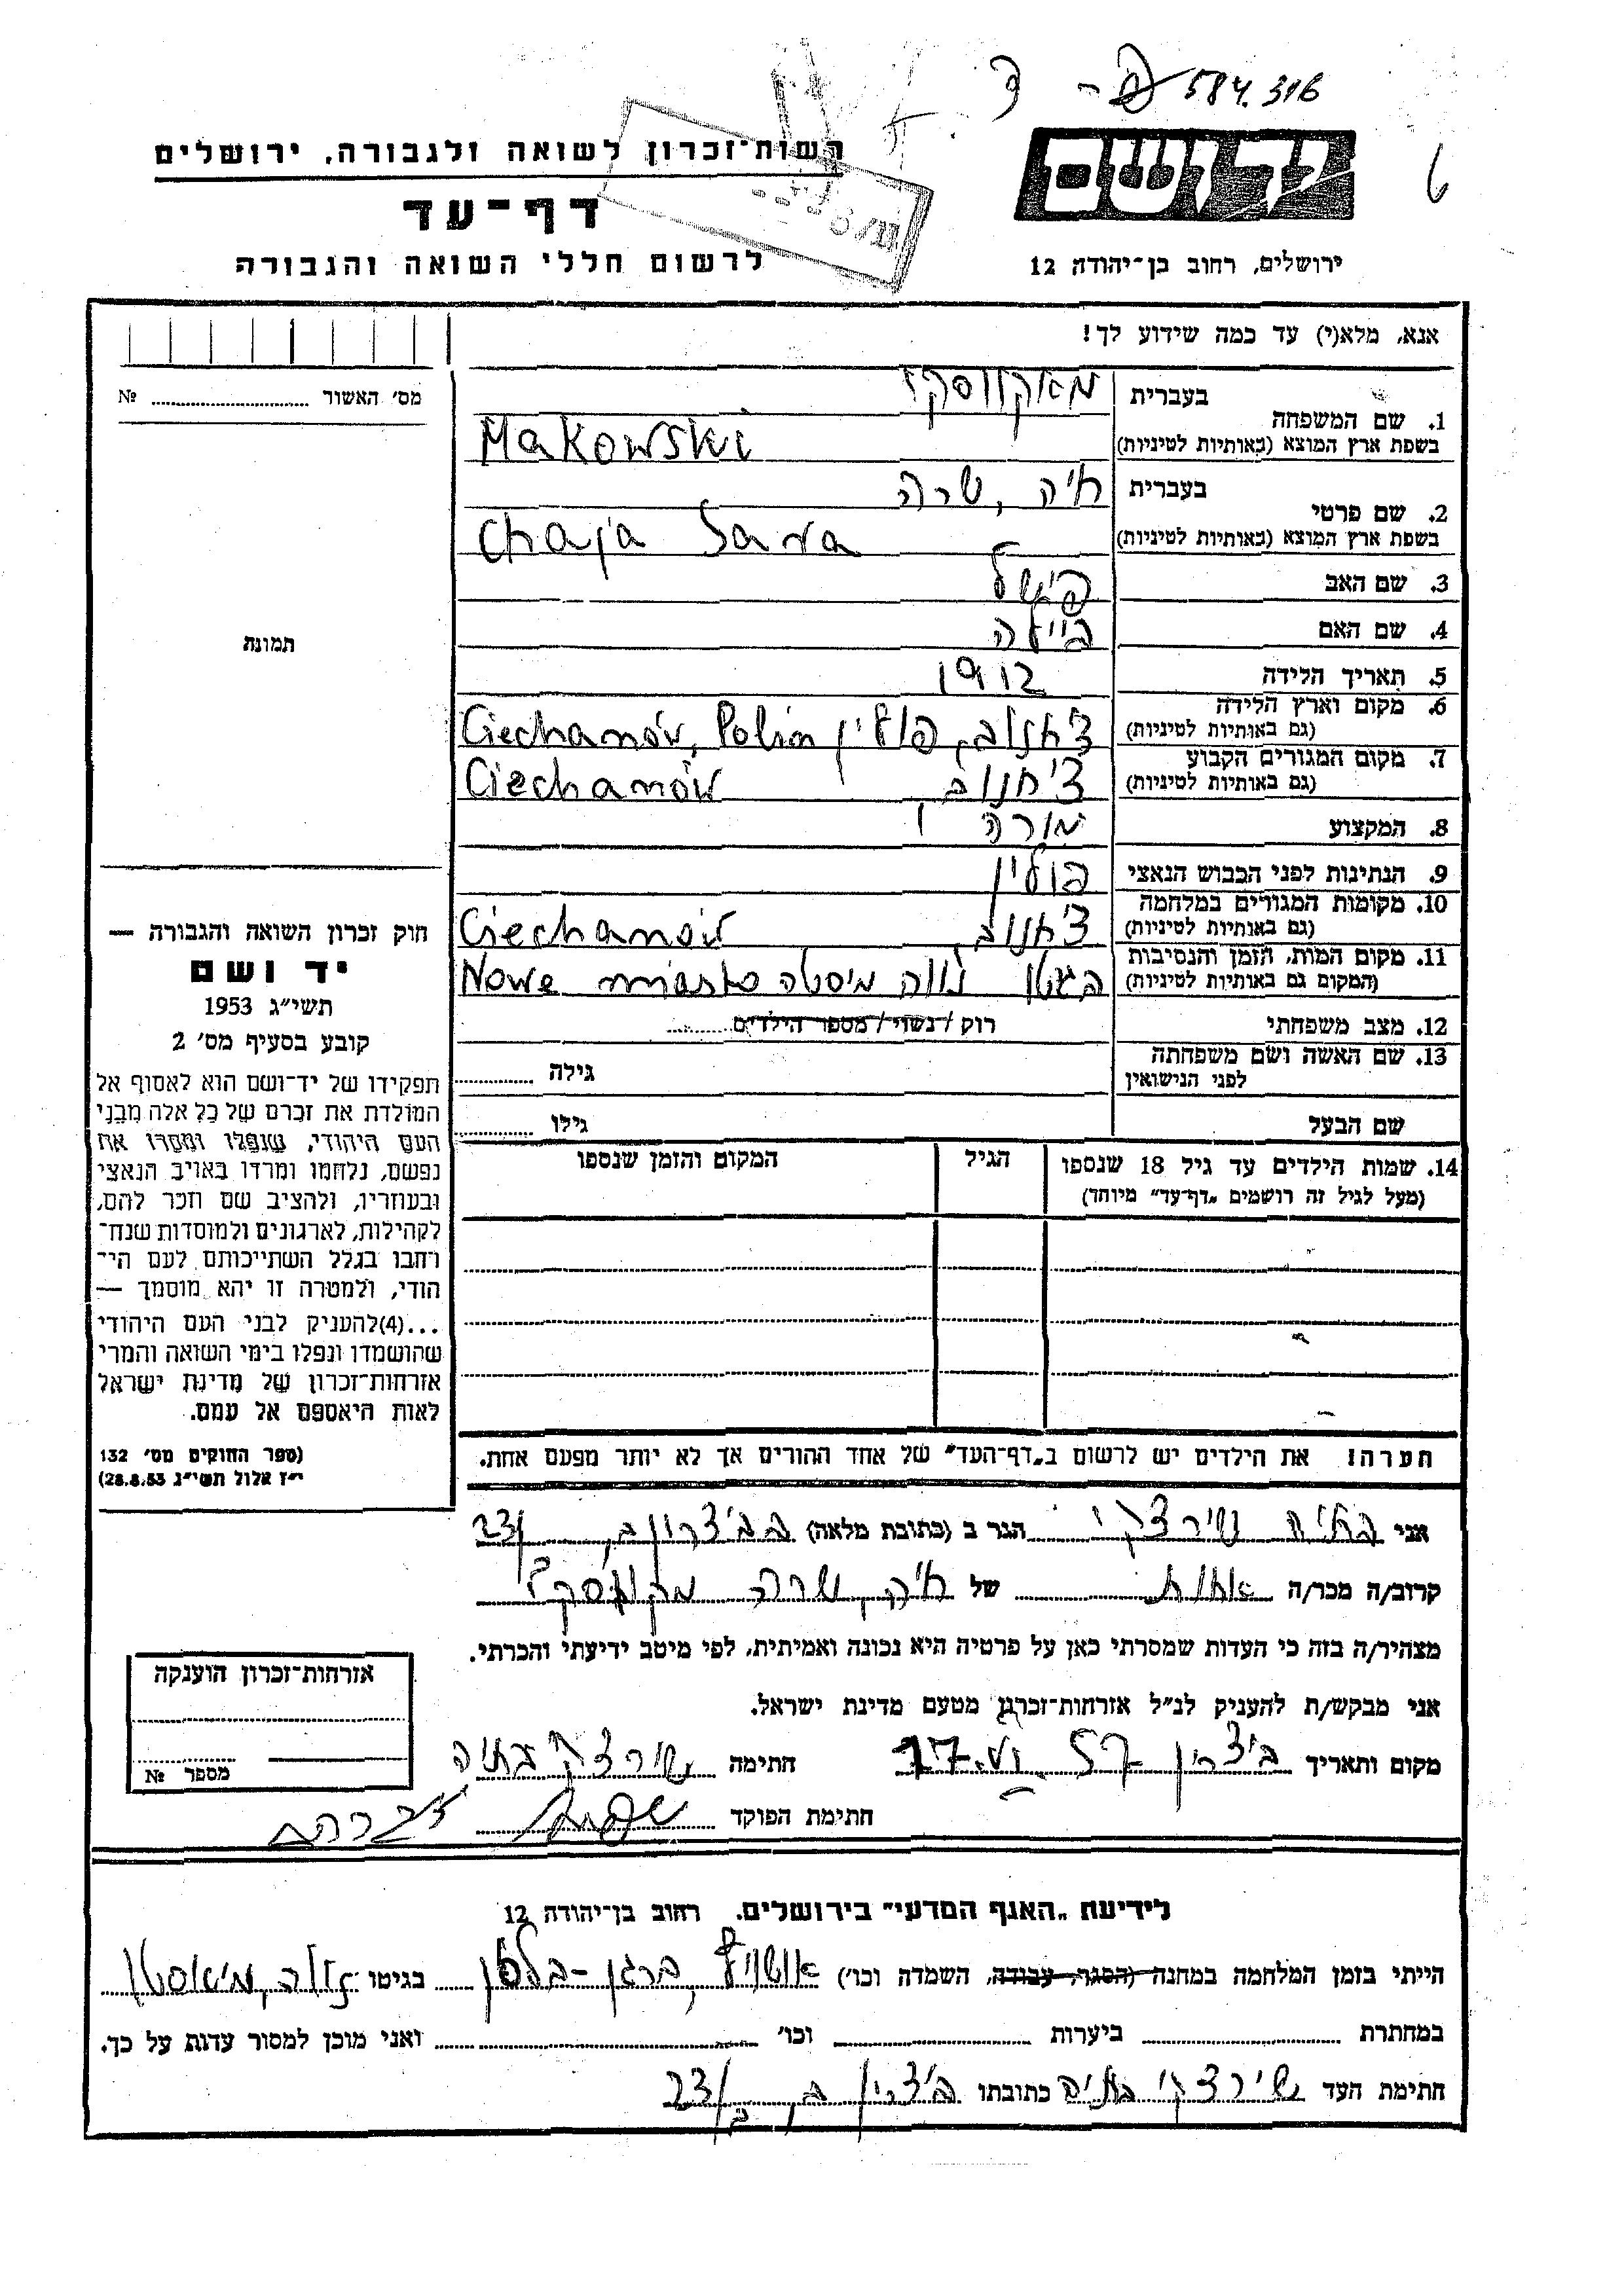 584.316
יד ושם
רשות־זכרון לשואה ולגבורה, ירושלים
דף־עד
ירושלים, רחוב בן־יהודה 12
לרשום חללי השואה והגבורה
אנא, מלא(י) עד כמה שידוע לך!
מס׳ האשור № 
1. שם המשפחה בעברית מאקווסקי
בשפת ארץ המוצא (באותיות לטיניות) Makowski
2. שם פרטי בעברית חיה, שרה
בשפת ארץ המוצא (באותיות לטיניות) Chaja Sara
3. שם האב פישל
4. שם האם ביילה
תמונה
5. תאריך הלידה 1912
6. מקום וארץ הלידה (גם באותיות לטיניות) צ׳חנוב, פולין Ciechanów, Polin
7. מקום המגורים הקבוע (גם באותיות לטיניות) צ׳חנוב, Ciechanów
8. המקצוע מורה
9. הנתינות לפני הכבוש הנאצי פולין
10. מקומות המגורים במלחמה (גם באותיות לטיניות) צ׳חנוב, Ciechanów
11. מקום המות, הזמן והנסיבות (המקום גם באותיות לטיניות) בגטו נווה מיסטה Nowe miasto
12. מצב משפחתי רוק / נשוי / מספר הילדים
13. שם האשה ושם משפחתה לפני הנישואין גילה
שם הבעל גילו
14. שמות הילדים עד גיל 18 שנספו הגיל המקום והזמן שנספו
(מעל לגיל זה רושמים „דף־עד״ מיוחד)
הערה! את הילדים יש לרשום ב„דף־העד״ של אחד ההורים אך לא יותר מפעם אחת.
חוק זכרון השואה והגבורה —
יד ושם
תשי״ג 1953
קובע בסעיף מס׳ 2
תפקידו של יד־ושם הוא לאסוף אל
המולדת את זכרם של כל אלה מבני
העם היהודי, שנפלו ומסרו את
נפשם, נלחמו ומרדו באויב הנאצי
ובעוזריו, ולהציב שם וזכר להם,
לקהילות, לארגונים ולמוסדות שנח־
רחבו בגלל השתייכותם לעם הי־
הודי, ולמטרה זו יהא מוסמך —
...(4)להעניק לבני העם היהודי
שהושמדו ונפלו בימי השואה והמרי
אזרחות־זכרון של מדינת ישראל
לאות היאספם אל עמם.
(ספר החוקים מס׳ 132
י״ז אלול תשי״ג 28.8.53)
אני בתיה שירצקי הגר ב (כתובת מלאה) בביצרון ב, 23/
קרוב/ה מכר/ה אחות של חיה, שרה מקווסקי
מצהיר/ה בזה כי העדות שמסרתי כאן על פרטיה היא נכונה ואמיתית, לפי מיטב ידיעתי והכרתי.
אני מבקש/ת להעניק לנ״ל אזרחות־זכרון מטעם מדינת ישראל.
מקום ותאריך ביצרון חתימה שירצקי בתיה
חתימת הפוקד
אזרחות־זכרון הוענקה
מספר №
לידיעת „האגף המדעי״ בירושלים. רחוב בן־יהודה 12
הייתי בזמן המלחמה במחנה (הסגר, עבודה, השמדה וכו׳) אושויץ, ברגן-בלסן בגיטו
במחתרת ביערות וכו׳ ואני מוכן למסור עדות על כך.
חתימת העד שירצקי בתיה כתובתו ביצרון ב, 23/